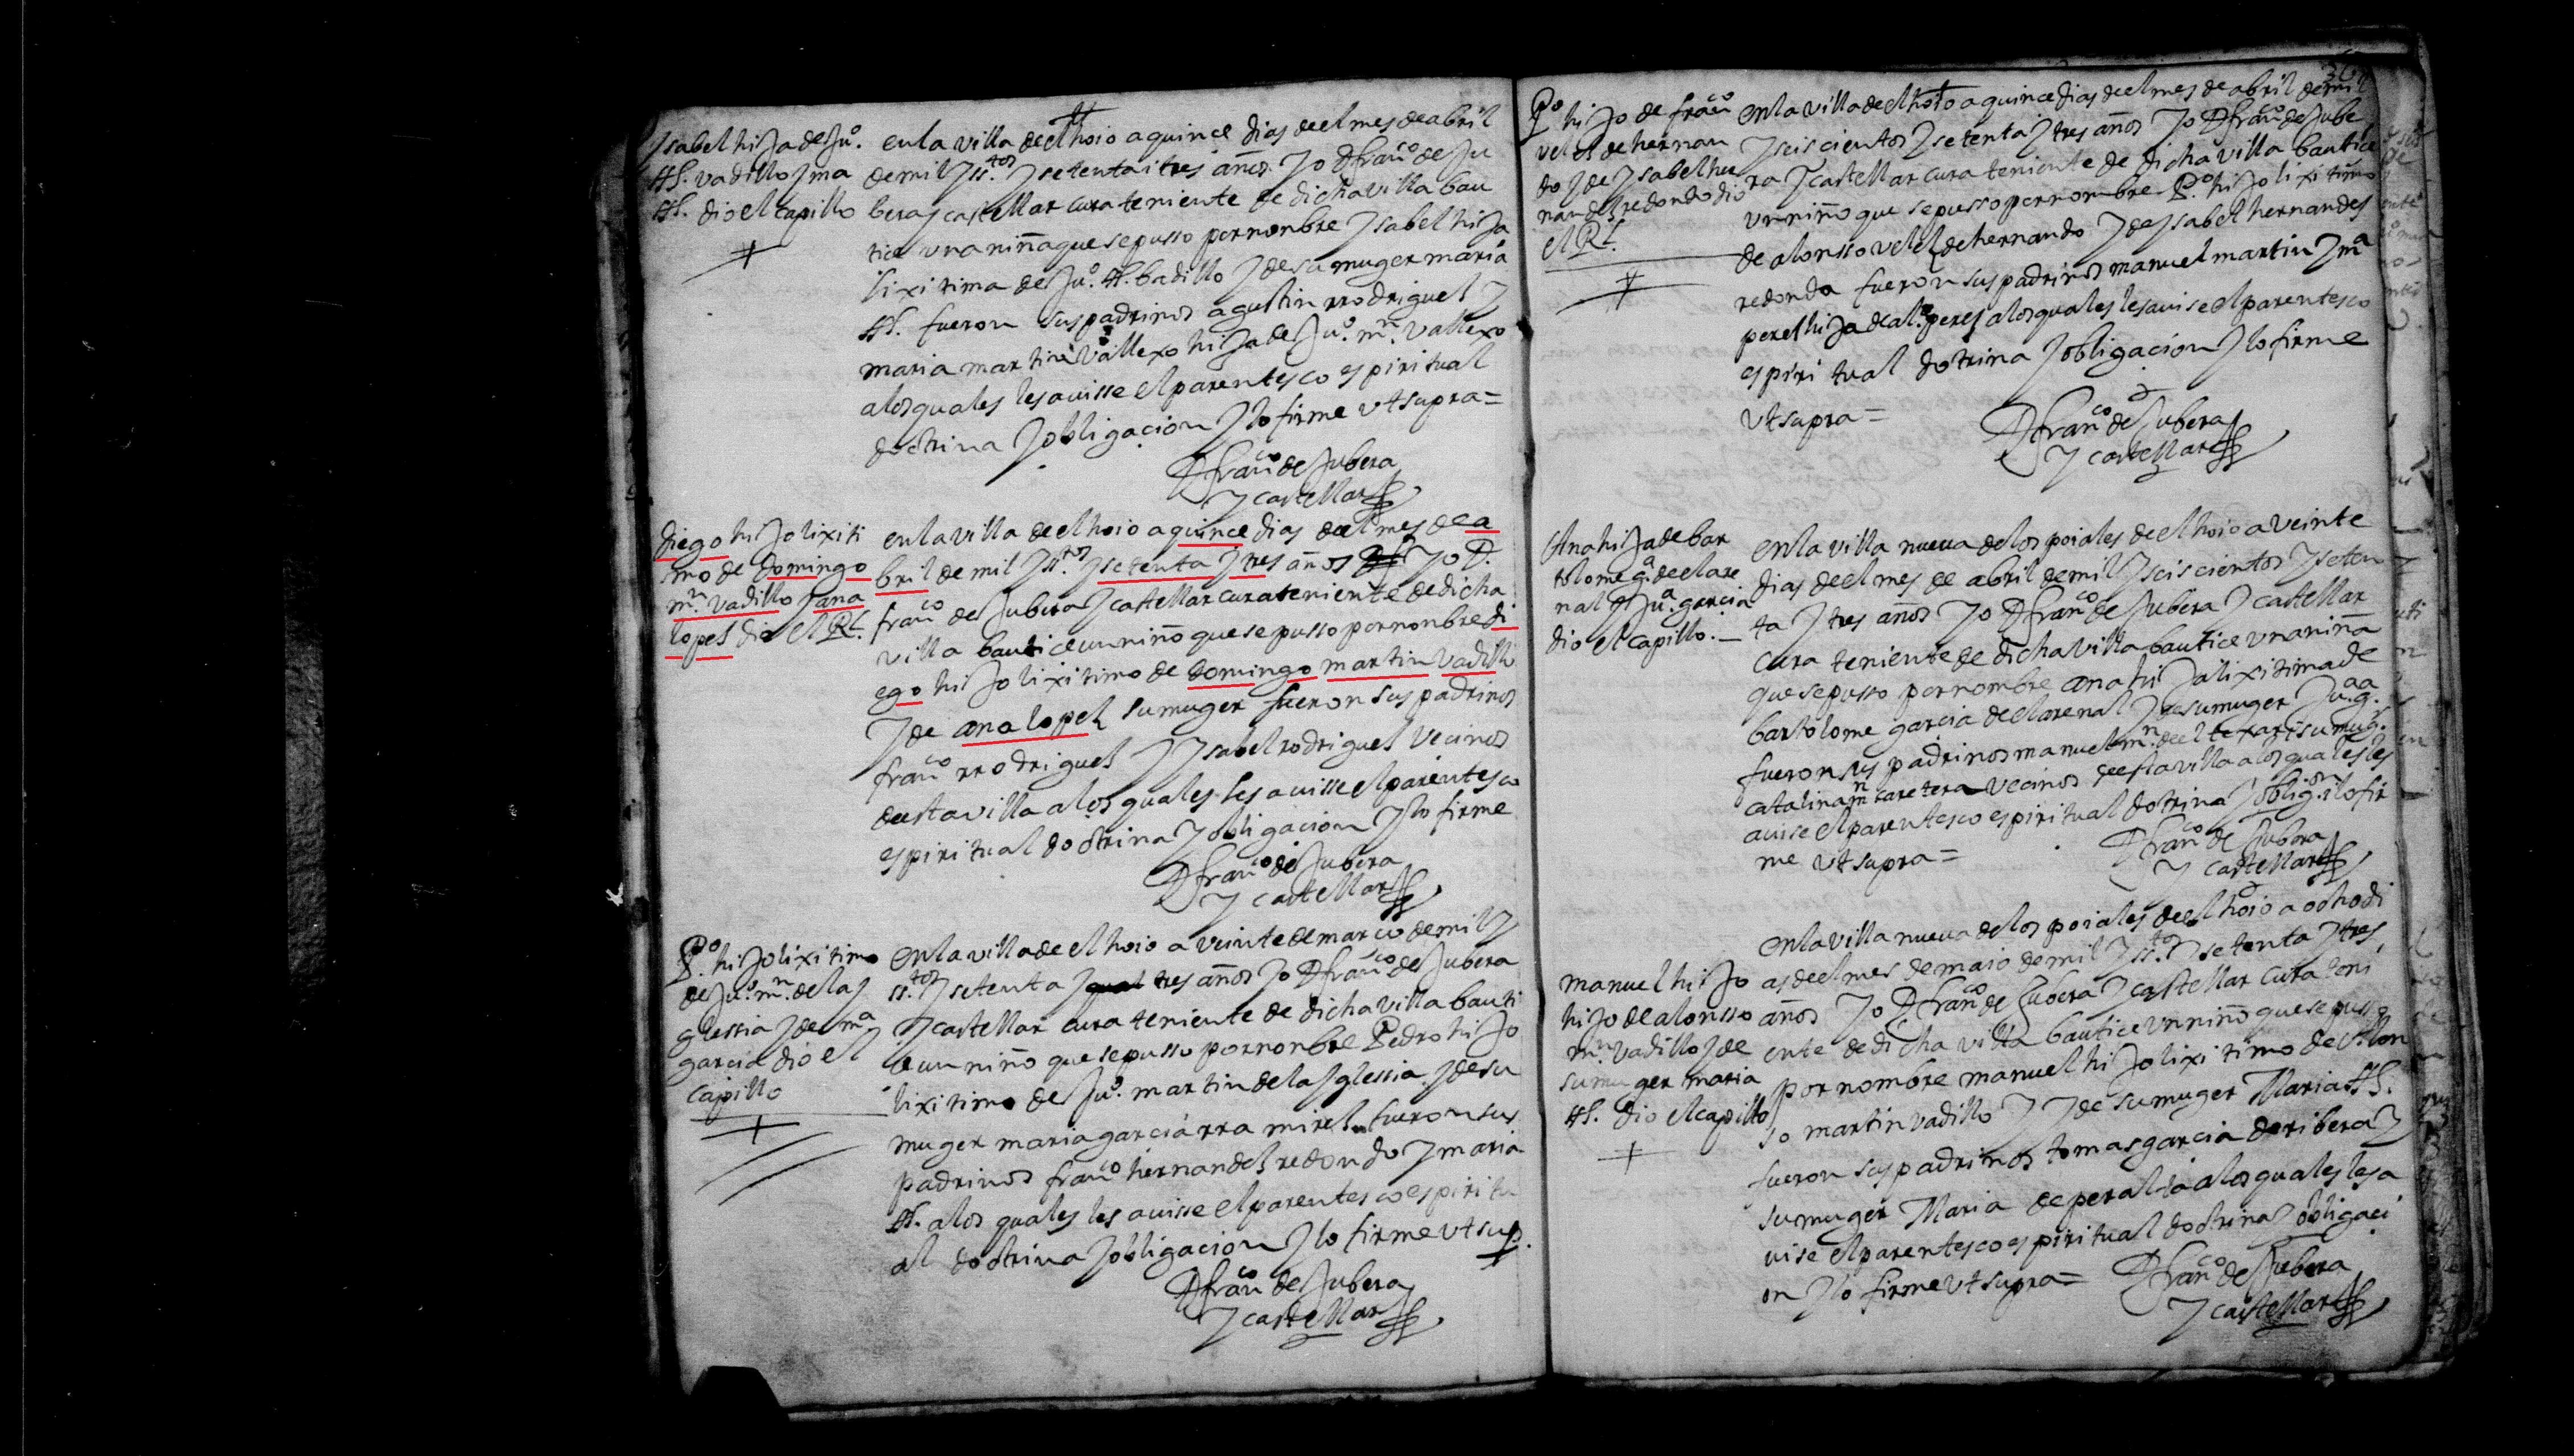 Ysabel hija de Ju.º
Hs. vadillo y ma
Hs. dio el capillo
en la villa de el hoio a quince dias de el mes de abril
de mil y ss.tos y setenta i tres años. yo D fran.co de Ju
bera y castellar cura teniente de dicha villa bau
tice una niña que se pusso por nonbre Ysabel hija
lixitima de Ju.º Hs. badillo y de su muger maria
Hs. fueron sus padrinos agustin rrodriguez y
maria martin vallexo hija de Ju.º mn. vallexo
a los quales les auisse el parentesco espiritual
doctrina y obligacion y lo firme vt supra =
D fran.co de Jubera
y castellar
diego hijo lixiti
mo de domingo
mn. vadillo y ana
lopez dio el Rl.
en la villa de el hoio a quince dias de el mes de a
bril de mil y ss.tos y setenta y tres años yo D.
fran.co de Jubera y castellar cura teniente de dicha
villa bautice un niño que se pusso por nonbre di
ego hijo lixitimo de domingo martin vadillo
y de ana lopez su muger fueron sus padrinos
fran.co rrodriguez y Ysabel rodriguez vecinos
de esta villa a los quales les auisse el parentesco
espiritual doctrina y obligacion y lo firme
D fran.co de Jubera
y castellar
P.º hijo lixitimo
de Ju.º mn. de la y
glessia y de ma
garcia dio el
capillo
en la villa de el hoio a veinte de março de mil y
ss.tos y setenta y tres años yo D fran.co de Jubera
y castellar cura teniente de dicha villa bauti
ce un niño que se pusso por nonbre Pedro hijo
lixitimo de Ju.º martin de la yglessia y de su
muger maria garcia rramirez fueron sus
padrinos fran.co hernandez redondo y maria
Hs. a los quales les auisse el parentesco espiritu
al doctrina y obligacion y lo firme vt sup.
D fran.co de Jubera
y castellar
P.º hijo de fran.co
velez de hernan
do y de Ysabel her
nandez redondo dio
el Rl.
en la villa de el hoio a quince dias de el mes de abril de mil
y seiscientos y setenta y tres años yo D fran.co de Jube
ra y castellar cura teniente de dicha villa bautice
un niño que se pusso por nombre P.º hijo lixitimo
de alonsso velez de hernando y de Ysabel hernandez
redonda fueron sus padrinos manuel martin y ma
perez hija de al.º perez a los quales les auise el parentesco
espiritual dotrina y obligacion y lo firme
vt supra =
D fran.co de Jubera
y castellar
Ana hija de bar
tolome ga. de el are
nal y Ju.a garcia
dio el capillo. —
en la villa nueva de los poiales de el hoio a veinte
dias de el mes de abril de mil y seiscientos y seten
ta y tres años yo D fran.co de Jubera y castellar
cura teniente de dicha villa bautice una niña
que se pusso por nombre ana hija lixitima de
bartolome garcia de el arenal y de su muger Ju.a ga.
fueron sus padrinos manuel mn. de el texar i su mug.r
catalina mn caretera vecinos de esta villa a los quales les
auise el parentesco espiritual dotrina y oblig.on i lo fir
me vt supra =
D fran.co de Jubera
y castellar
manuel hijo
hijo de alonsso
mn. vadillo y de
su muger maria
Hs. dio el capillo
en la villa nueva de los poiales de el hoio a ocho di
as de el mes de maio de mil y ss.tos y setenta y tres
años yo D fran.co de Jubera y castellar cura teni
ente de dicha villa bautice un niño que se pusso
por nombre manuel hijo lixitimo de Alon
so martin vadillo y de su muger Maria Hs.
fueron sus padrinos tomas garcia de ribera y
su muger Maria de peralta a los quales les a
vise el parentesco espiritual doctrina y obligaci
on y lo firme vt supra =
D fran.co de Jubera
y castellar